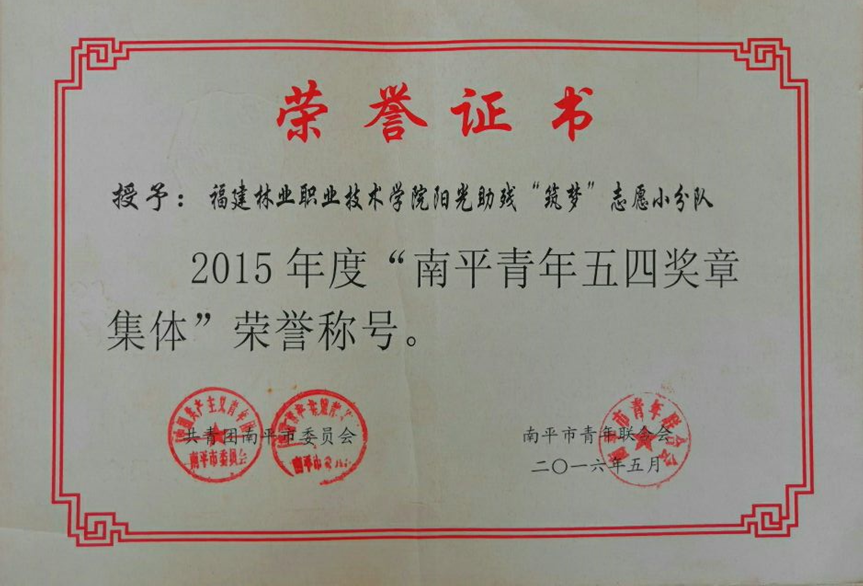 荣誉证书
授予：福建林业职业技术学院阳光助残“筑梦”志愿小分队
2015年度“南平青年五四奖章
集体”荣誉称号。
共青团南平市委员会
南平市青年联合会
二〇一六年五月